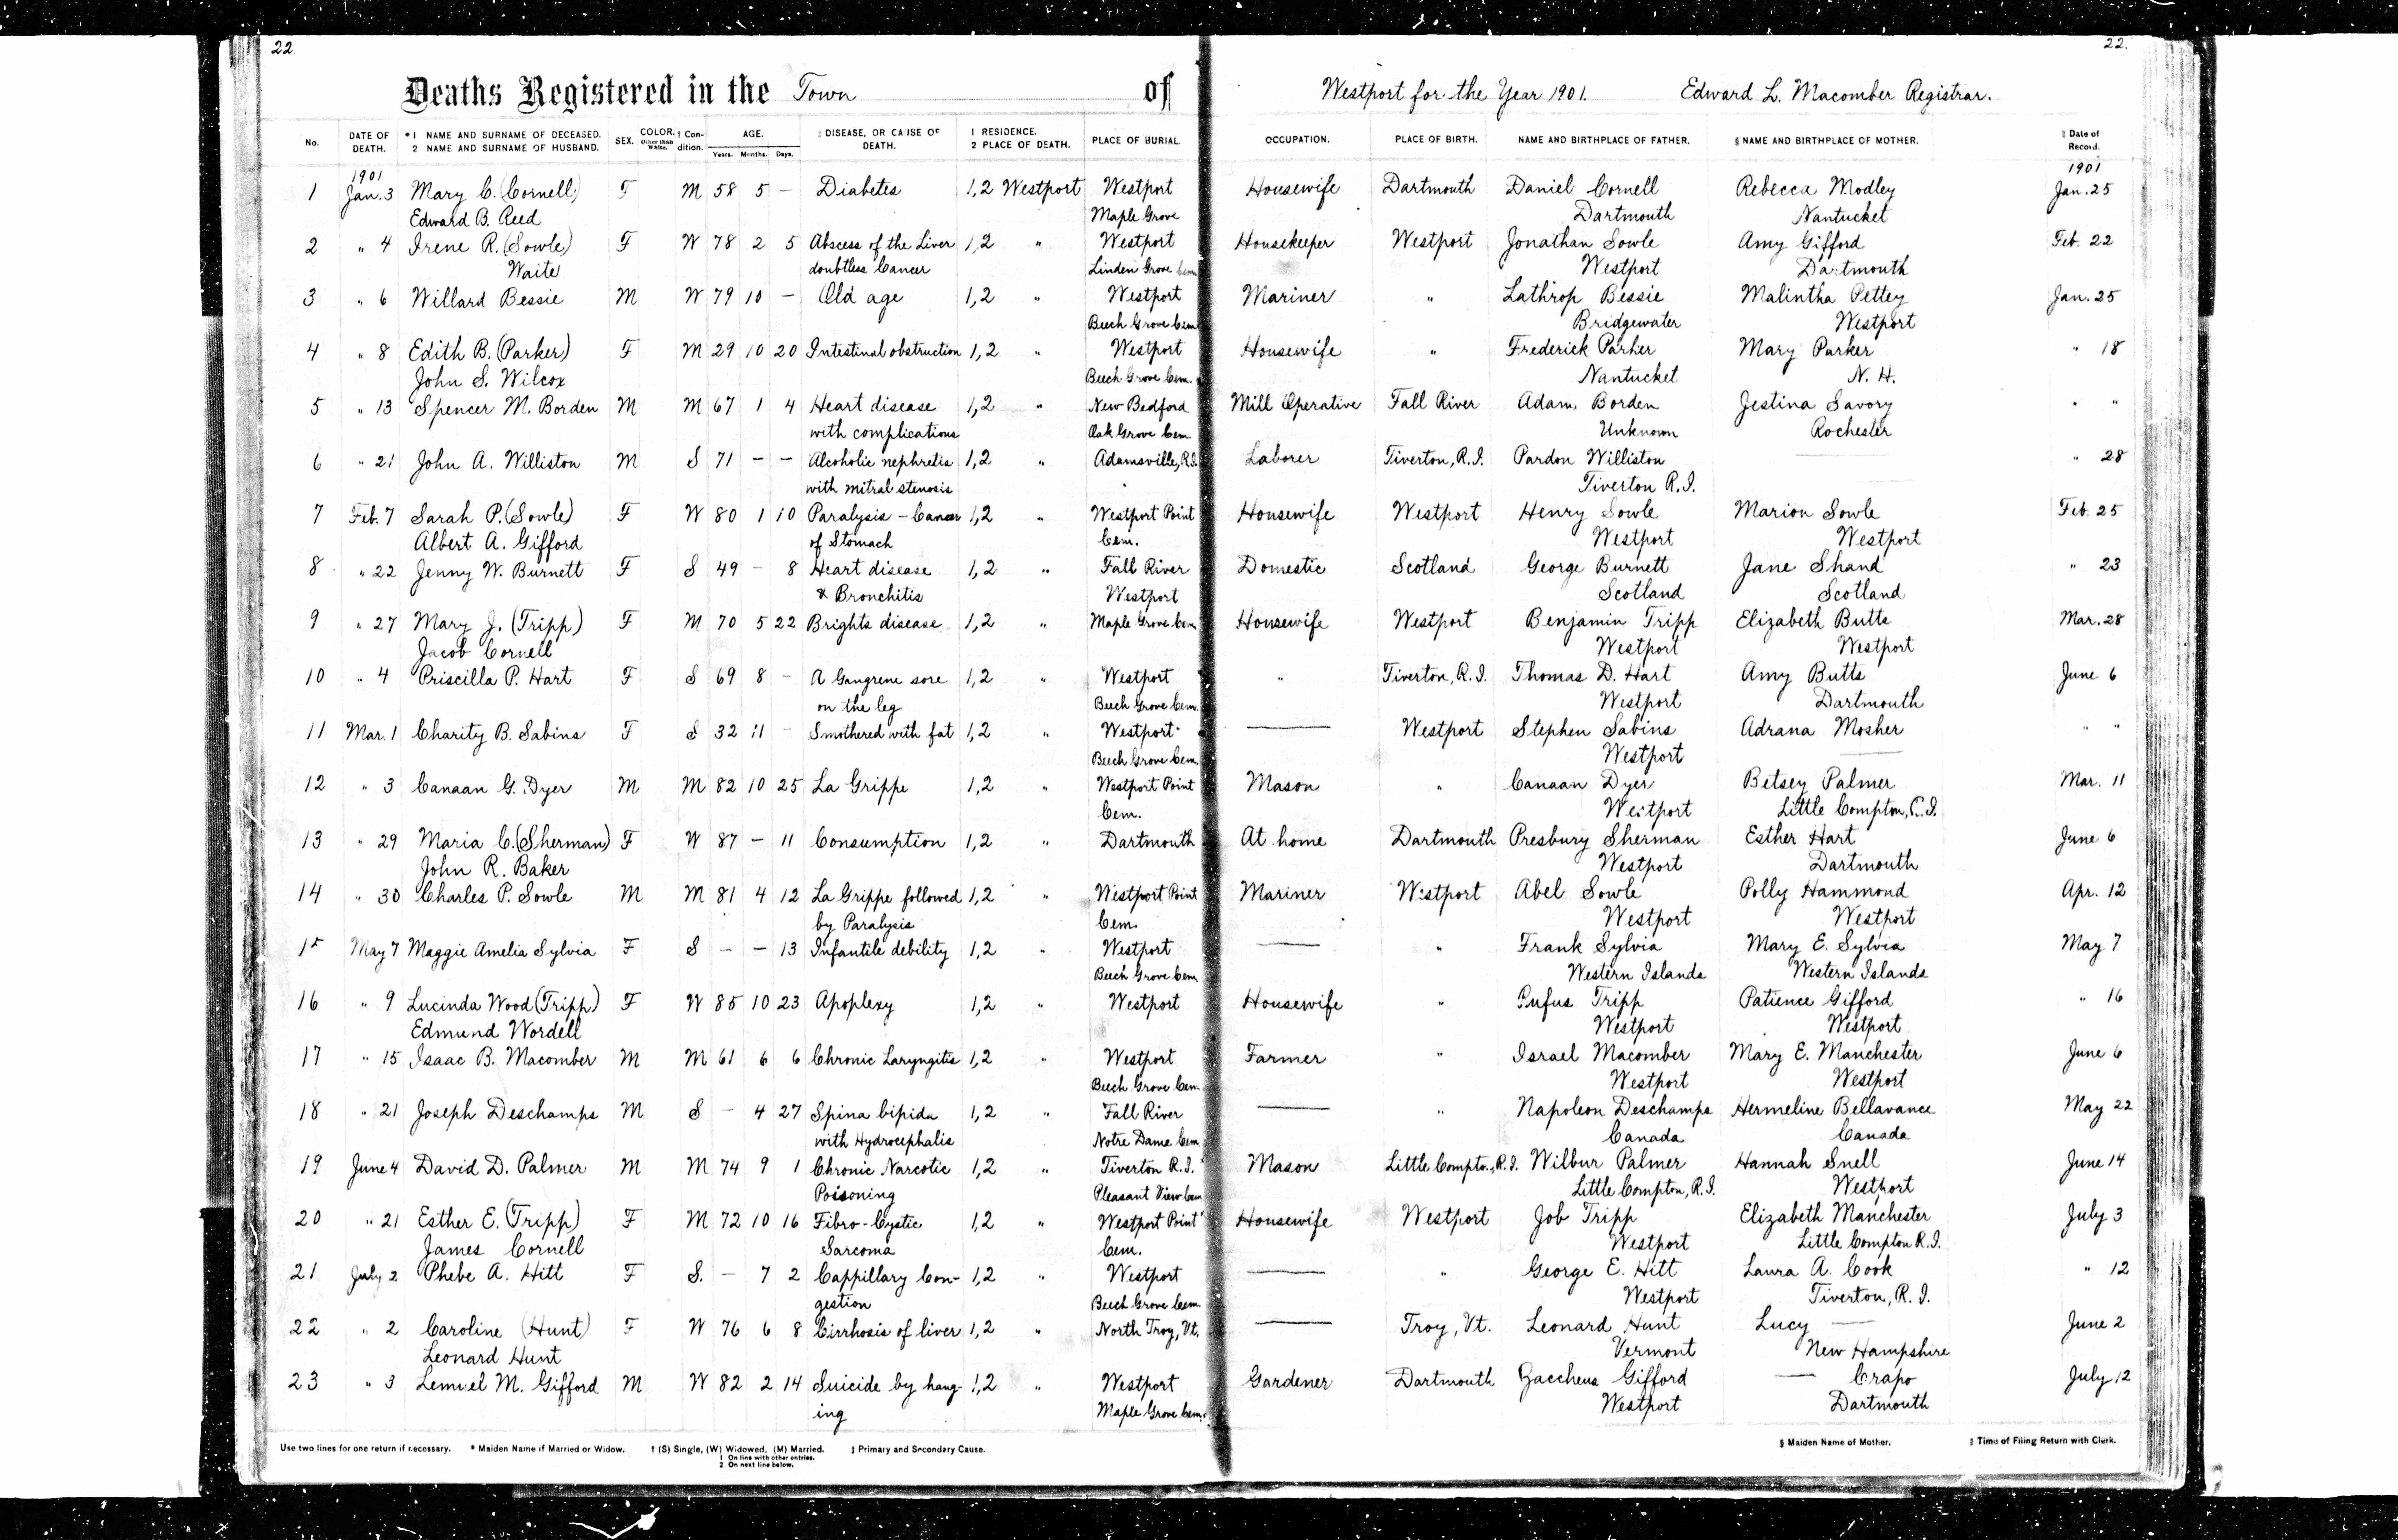 22 22.
Deaths Registered in the Town of Westport for the Year 1901. Edward L. Macomber Registrar.
No. DATE OF DEATH. *1 NAME AND SURNAME OF DECEASED. 2 NAME AND SURNAME OF HUSBAND. SEX. COLOR. Other than White. † Condition. AGE. Years. Months. Days. ‡ DISEASE, OR CAUSE OF DEATH. 1 RESIDENCE. 2 PLACE OF DEATH. PLACE OF BURIAL OCCUPATION. PLACE OF BIRTH. NAME AND BIRTHPLACE OF FATHER. § NAME AND BIRTHPLACE OF MOTHER. Date of Record.
1901 1901
1 Jan. 3 Mary C. (Cornell) F M 58 5 - Diabetes 1,2 Westport Westport Housewife Dartmouth Daniel Cornell Rebecca Modley Jan. 25
Edward B. Reed Maple Grove Dartmouth Nantucket
2 " 4 Irene R. (Sowle) F W 78 2 5 Abscess of the Liver 1,2 " Westport Housekeeper Westport Jonathan Sowle Amy Gifford Feb. 22
Waite doubtless Cancer Linden Grove Cem Westport Dartmouth
3 " 6 Willard Bessie M W 79 10 - Old age 1,2 " Westport Mariner " Lathrop Bessie Malintha Pettey Jan. 25
Beech Grove Cem Bridgewater Westport
4 " 8 Edith B. (Parker) F M 29 10 20 Intestinal obstruction 1,2 " Westport Housewife " Frederick Parker Mary Parker " 18
John S. Wilcox Beech Grove Cem. Nantucket N. H.
5 " 13 Spencer M. Borden M M 67 1 4 Heart disease 1,2 " New Bedford Mill Operative Fall River Adam Borden Jestina Savory " "
with complications Oak Grove Cem Unknown Rochester
6 " 21 John A. Williston M S 71 - - Alcoholic nephretis 1,2 " Adamsville, R.I. Laborer Tiverton, R.I. Pardon Williston — " 28
with mitral stenosis Tiverton R.I.
7 Feb. 7 Sarah P. (Sowle) F W 80 1 10 Paralysis - Cancer 1,2 " Westport Point Housewife Westport Henry Sowle Marion Sowle Feb. 25
Albert A. Gifford of Stomach Cem. Westport Westport
8 " 22 Jenny W. Burnett F S 49 - 8 Heart disease 1,2 " Fall River Domestic Scotland George Burnett Jane Shand " 23
& Bronchitis Westport Scotland Scotland
9 " 27 Mary J. (Tripp) F M 70 5 22 Brights disease 1,2 " Maple Grove Cem Housewife Westport Benjamin Tripp Elizabeth Butts Mar. 28
Jacob Cornell Westport Westport
10 " 4 Priscilla P. Hart F S 69 8 - A Gangrene sore 1,2 " Westport " Tiverton, R.I. Thomas D. Hart Amy Butts June 6
on the leg Beech Grove Cem. Westport Dartmouth
11 Mar. 1 Charity B. Sabins F S 32 11 - Smothered with fat 1,2 " Westport — Westport Stephen Sabins Adrana Mosher " "
Beech Grove Cem. Westport —
12 " 3 Canaan G. Dyer M M 82 10 25 La Grippe 1,2 " Westport Point Mason " Canaan Dyer Betsey Palmer Mar. 11
Cem. Westport Little Compton, R.I.
13 " 29 Maria C. (Sherman) F W 87 - 11 Consumption 1,2 " Dartmouth At home Dartmouth Presbury Sherman Esther Hart June 6
John R. Baker Westport Dartmouth
14 " 30 Charles P. Sowle M M 81 4 12 La Grippe followed 1,2 " Westport Point Mariner Westport Abel Sowle Polly Hammond Apr. 12
by Paralysis Cem. Westport Westport
15 May 7 Maggie Amelia Sylvia F S - - 13 Infantile debility 1,2 " Westport — " Frank Sylvia Mary E. Sylvia May 7
Beech Grove Cem Western Islands Western Islands
16 " 9 Lucinda Wood (Tripp) F W 85 10 23 Apoplexy 1,2 " Westport Housewife " Rufus Tripp Patience Gifford " 16
Edmund Wordell Westport Westport
17 " 15 Isaac B. Macomber M M 61 6 6 Chronic Laryngitis 1,2 " Westport Farmer " Israel Macomber Mary E. Manchester June 6
Beech Grove Cem. Westport Westport
18 " 21 Joseph Deschamps M S - 4 27 Spina bipida 1,2 " Fall River — " Napoleon Deschamps Hermeline Bellavance May 22
with Hydrocephalis Notre Dame Cem Canada Canada
19 June 4 David D. Palmer M M 74 9 1 Chronic Narcotic 1,2 " Tiverton R.I. Mason Little Compton, R.I. Wilbur Palmer Hannah Snell June 14
Poisoning Pleasant View Cem Little Compton, R.I. Westport
20 " 21 Esther E. (Tripp) F M 72 10 16 Fibro-Cystic 1,2 " Westport Point Housewife Westport Job Tripp Elizabeth Manchester July 3
James Cornell Sarcoma Cem. Westport Little Compton R.I.
21 July 2 Phebe A. Hitt F S. - 7 2 Cappillary Con- 1,2 " Westport — " George E. Hitt Laura A. Cook " 12
gestion Beech Grove Cem. Westport Tiverton, R.I.
22 " 2 Caroline (Hunt) F W 76 6 8 Cirrhosis of liver 1,2 " North Troy, Vt. — Troy, Vt. Leonard Hunt Lucy — June 2
Leonard Hunt Vermont New Hampshire
23 " 3 Lemuel M. Gifford M W 82 2 14 Suicide by hang- 1,2 " Westport Gardener Dartmouth Zaccheus Gifford — Crapo July 12
ing Maple Grove Cem. Westport Dartmouth
Use two lines for one return if necessary. * Maiden Name if Married or Widow. † (S) Single, (W) Widowed, (M) Married. ‡ Primary and Secondary Cause. § Maiden Name of Mother. Time of Filing Return with Clerk.
1 On line with other entries.
2 On next line below.